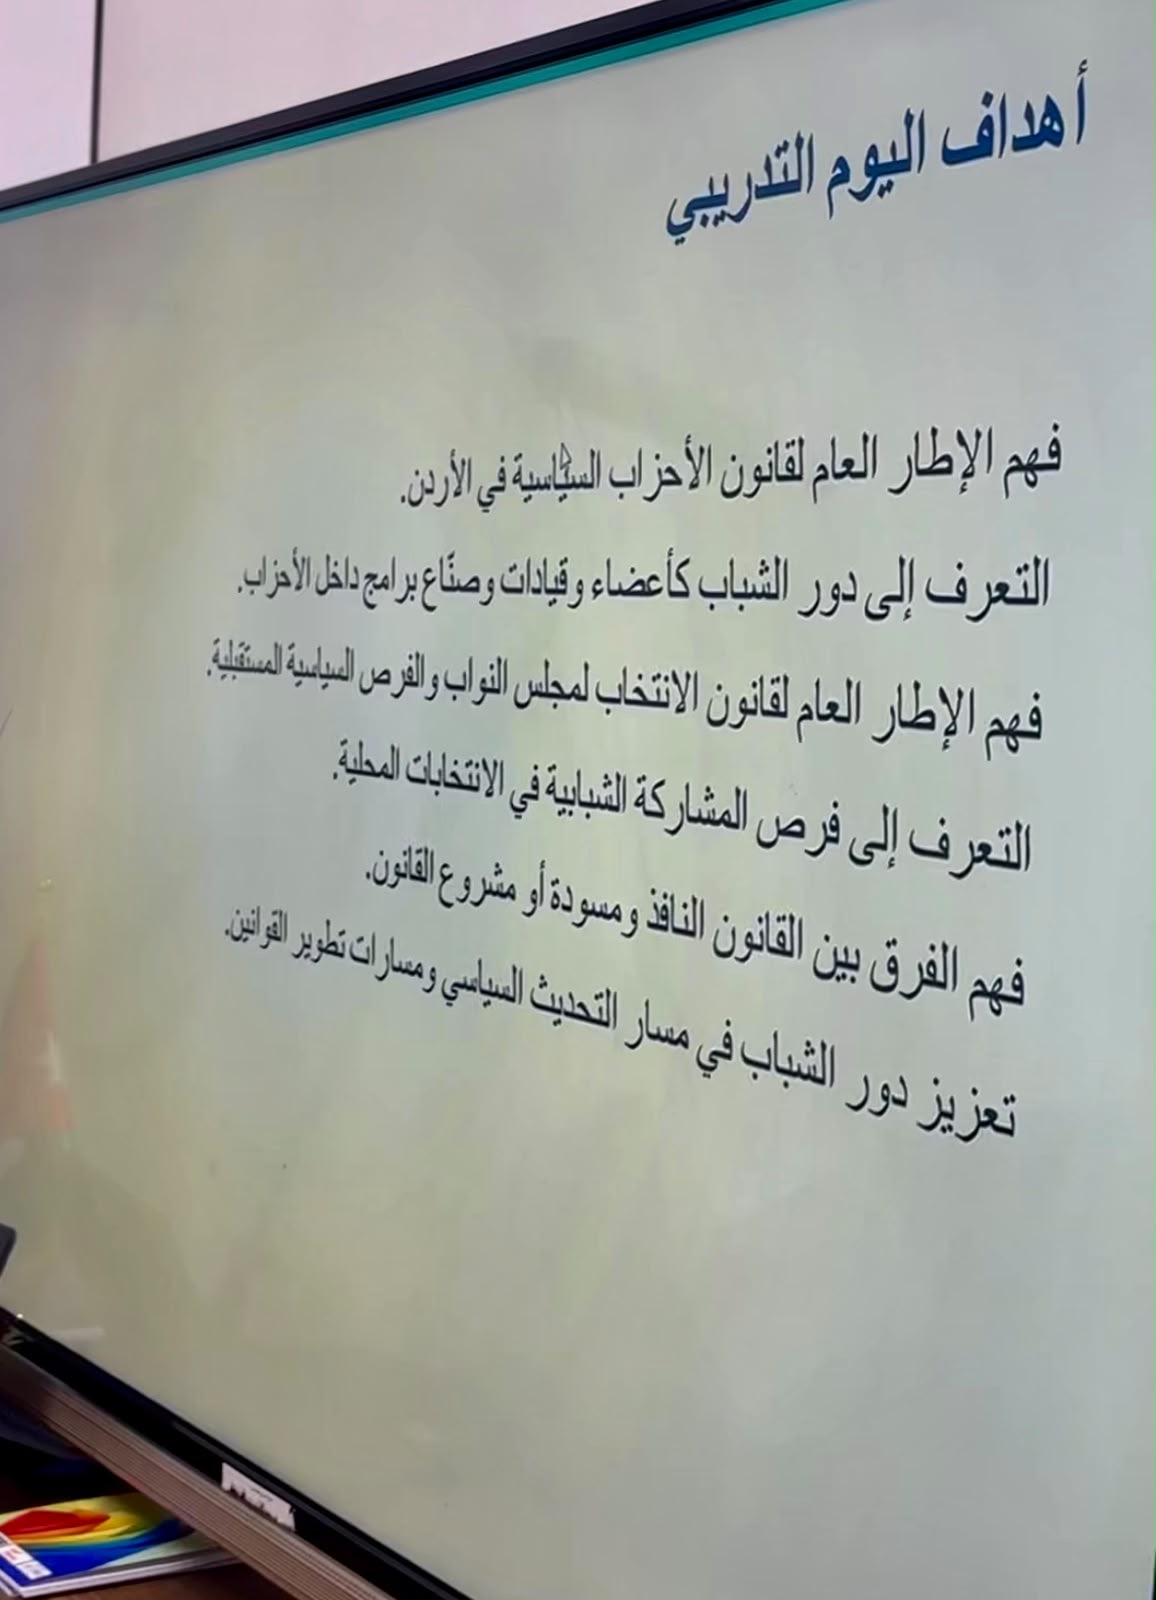 أهداف اليوم التدريبي
فهم الإطار العام لقانون الأحزاب السياسية في الأردن.
التعرف إلى دور الشباب كأعضاء وقيادات وصنّاع برامج داخل الأحزاب.
فهم الإطار العام لقانون الانتخاب لمجلس النواب والفرص السياسية المستقبلية.
التعرف إلى فرص المشاركة الشبابية في الانتخابات المحلية.
فهم الفرق بين القانون النافذ ومسودة أو مشروع القانون.
تعزيز دور الشباب في مسار التحديث السياسي ومسارات تطوير القوانين.